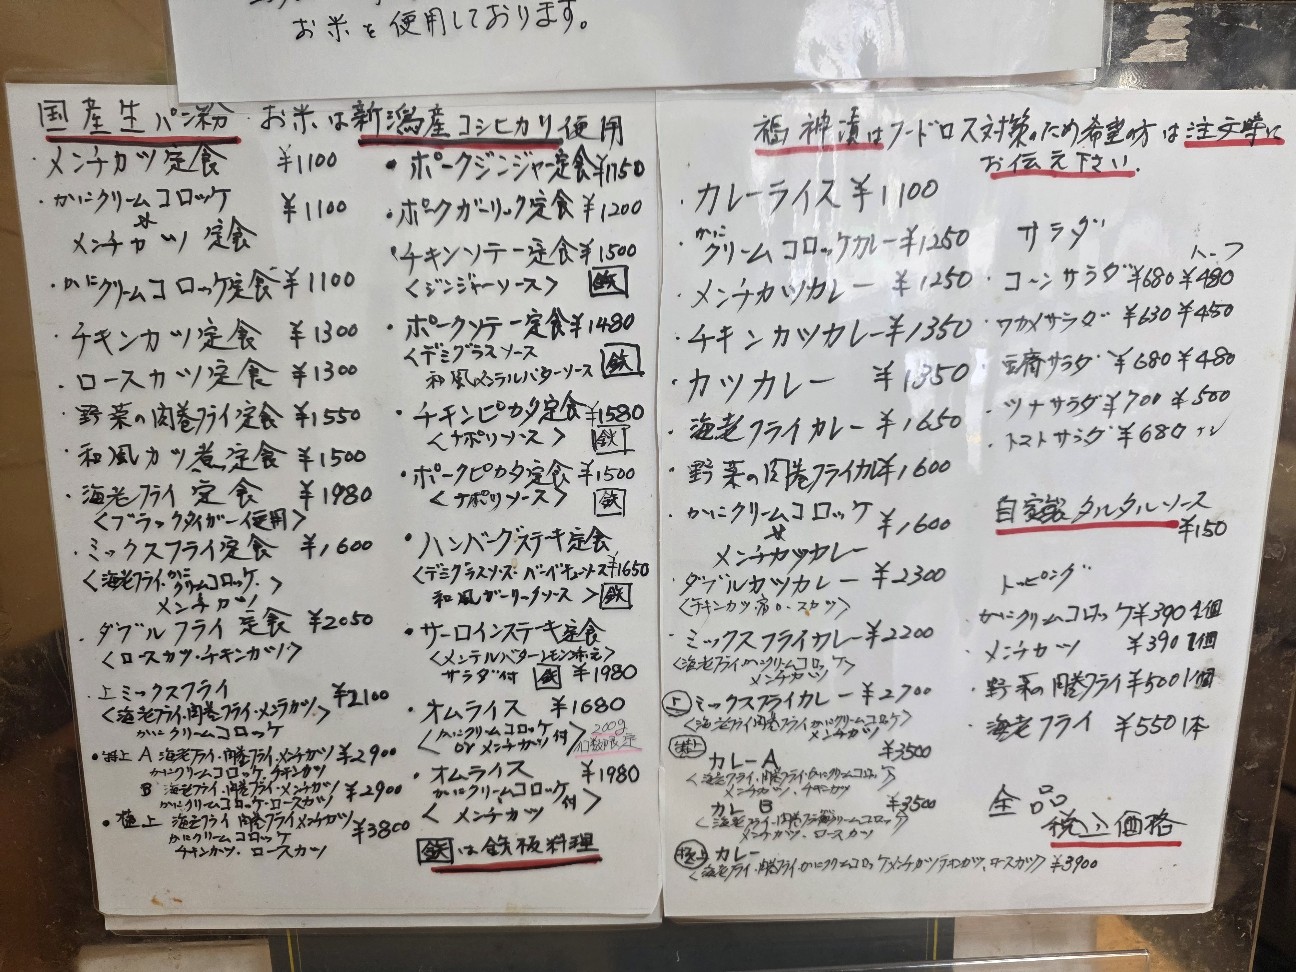 お米を使用しております。
国産生パン粉 お米は新潟産コシヒカリ使用
・メンチカツ定食 ¥1100
・かにクリームコロッケ
メンチカツ 定食 ¥1100
・かにクリームコロッケ定食 ¥1100
・チキンカツ定食 ¥1300
・ロースカツ定食 ¥1300
・野菜の肉巻フライ定食 ¥1550
・和風カツ煮定食 ¥1500
・海老フライ定食 ¥1980
<ブラックタイガー使用>
・ミックスフライ定食 ¥1600
<海老フライ・かにクリームコロッケ・
メンチカツ>
・ダブルフライ定食 ¥2050
<ロースカツ・チキンカツ>
・上ミックスフライ ¥2100
<海老フライ・肉巻フライ・メンチカツ>
かにクリームコロッケ
・特上 A 海老フライ・肉巻フライ・メンチカツ ¥2900
かにクリームコロッケ チキンカツ
B 海老フライ・肉巻フライ・メンチカツ ¥2900
かにクリームコロッケ・ロースカツ
・極上 海老フライ 肉巻フライ メンチカツ ¥3800
かにクリームコロッケ
チキンカツ・ロースカツ
・ポークジンジャー定食 ¥1150
・ポークガーリック定食 ¥1200
・チキンソテー定食 ¥1500
<ジンジャーソース> 鉄
・ポークソテー定食 ¥1480
<デミグラスソース
鉄
・チキンピカタ定食 ¥1580
<ナポリソース> 鉄
・ポークピカタ定食 ¥1500
<ナポリソース> 鉄
・ハンバーグステキ定食
<デミグラスソース・バーベキューソース ¥1650
和風ガーリックソース> 鉄
・サーロインステーキ定食
サラダ付 鉄 ¥1980
・オムライス ¥1680
<かにクリームコロッケ
or メンチカツ付>
200g
・オムライス ¥1980
かにクリームコロッケ
<メンチカツ 付>
鉄は鉄板料理
福神漬はフードロス対策のため希望の方は注文時に
お伝え下さい.
・カレーライス ¥1100
・かにクリームコロッケカレー ¥1250
・メンチカツカレー ¥1250
・チキンカツカレー ¥1350
・カツカレー ¥1350
・海老フライカレー ¥1650
・野菜の肉巻フライカレー ¥1600
・かにクリームコロッケ
メンチカツカレー ¥1600
・ダブルカツカレー ¥2300
<チキンカツ・ロースカツ>
・ミックスフライカレー ¥2200
<海老フライ・かにクリームコロッケ>
メンチカツ
上 ミックスフライカレー ¥2700
<海老フライ・肉巻フライ・かにクリームコロッケ>
メンチカツ
特上 カレーA ¥3500
<海老フライ・肉巻フライ・かにクリームコロッケ>
メンチカツ、チキンカツ
カレーB ¥3500
メンチカツ・ロースカツ
極上 カレー
<海老フライ・肉巻フライ・かにクリームコロッケ・メンチカツ・チキンカツ、ロースカツ> ¥3900
サラダ
ハーフ
・コーンサラダ ¥680 ¥480
・ワカメサラダ ¥630 ¥450
・豆腐サラダ ¥680 ¥480
・ツナサラダ ¥700 ¥500
・トマトサラダ ¥680
自家製タルタルソース
¥150
トッピング
・かにクリームコロッケ ¥390 1個
・メンチカツ ¥390 1個
・野菜の肉巻フライ ¥500 1個
・海老フライ ¥550 1本
全品
税込価格